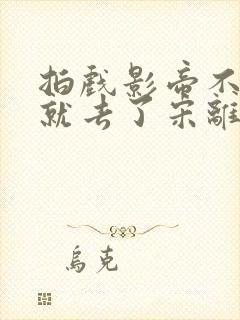 拍戏影帝不
就去了宋離
烏克